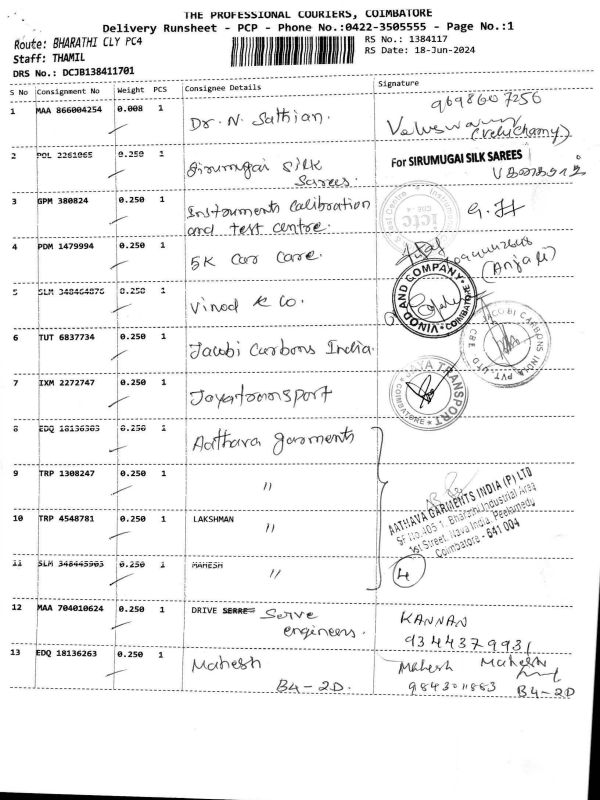 THE PROFESSIONAL COURIERS, COIMBATORE
Delivery Runsheet - PCP - Phone No.:0422-3505555 - Page No.:1
Route: BHARATHI CLY PC4
RS No.: 1384117
Staff: THAMIL
RS Date: 18-Jun-2024
DRS No.: DCJB138411701
S No Consignment No Weight PCS Consignee Details Signature
1 MAA 866004254 0.008 1 Dr. N. Sathian. 9698607256
(Veluchamy)
2 POL 2261065 0.250 1 Sirumugai Silk Sarees. For SIRUMUGAI SILK SAREES
3 GPM 380824 0.250 1 Instruments Calibration and test centre.
ictc
4 PDM 1479994 0.250 1 5K Car Care.
(Anjali)
5 SLM 348464876 0.250 1 Vinod & Co.
VINOD AND COMPANY
COIMBATORE
6 TUT 6837734 0.250 1 Jacobi Carbons India.
JACOBI CARBONS INDIA PVT
CBE
7 IXM 2272747 0.250 1 Jayatransport
JAYA TRANSPORT
COIMBATORE
8 EDQ 18136303 0.250 1 Aathava garments
9 TRP 1308247 0.250 1 "
AATHAVA GARMENTS INDIA (P) LTD
SF No.405/1, Bharathi Industrial Area
1st Street, Nava India, Peelamedu
Coimbatore - 641 004
10 TRP 4548781 0.250 1 LAKSHMAN "
11 SLM 348445903 0.250 1 MAHESH "
4
12 MAA 704010624 0.250 1 DRIVE SERRE Serve engineers. KANNAN
9344379931
13 EDQ 18136263 0.250 1 Mahesh Mahesh Mahesh
B4-2D. 9843011883 B4-2D